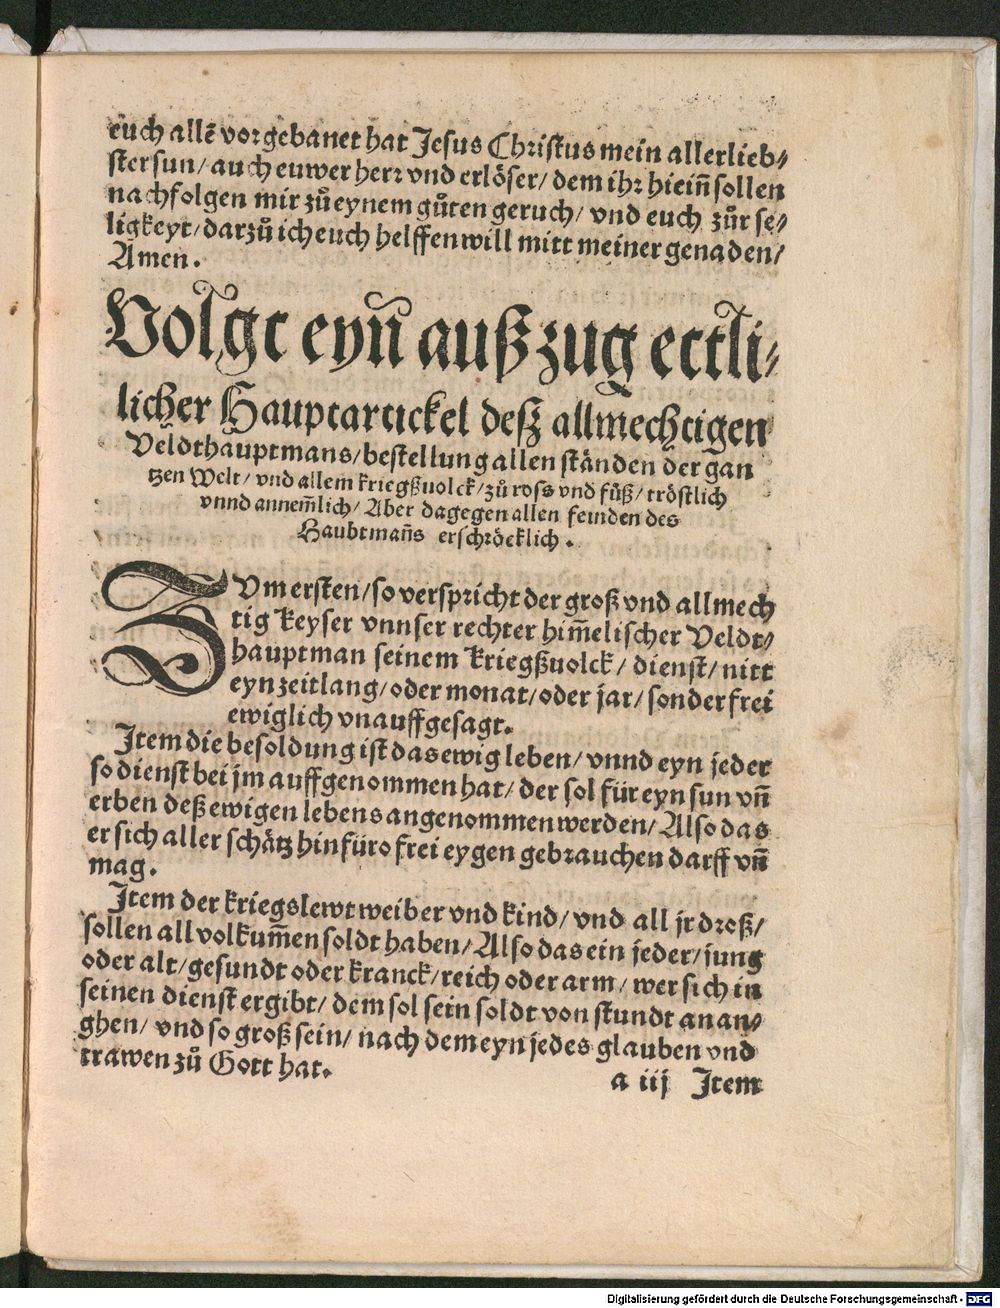 euch allē vorgebanet hat Jesus Christus mein allerlieb⸗
ster sun/ auch euwer herr vnd erlöser/ dem ihr hieiñ sollen
nachfolgen mir zů eynem gůten geruch/ vnd euch zůr se⸗
ligkeyt/ darzů ich euch helffen will mitt meiner genaden/
Amen.
Volgt eyn̄ außzug ettli⸗
licher Hauptartickel deß allmechtigen
Veldthauptmans/ bestellung allen ständen der gan
tzen Welt/ vnd allem kriegßuolck/ zů ross vnd fůß/ tröstlich
vnnd annem̄lich/ Aber dagegen allen feinden des
Haubtman̄s erschröcklich.
ZVm ersten/ so verspricht der groß vnd allmech
tig keyser vnnser rechter him̄elischer Veldt⸗
hauptman seinem kriegßuolck/ dienst/ nitt
eyn zeitlang/ oder monat/ oder jar/ sonder frei
ewiglich vnauffgesagt.
Item die besoldung ist das ewig leben/ vnnd eyn jeder
so dienst bei jm auffgenommen hat/ der sol für eyn sun vn̄
erben deß ewigen lebens angenommen werden/ Also das
er sich aller schätz hinfüro frei eygen gebrauchen darff vn̄
mag.
Item der kriegslewt weiber vnd kind/ vnd all jr droß/
sollen all volkum̄en soldt haben/ Also das ein jeder/ jung
oder alt/ gesundt oder kranck/ reich oder arm/ wer sich in
seinen dienst ergibt/ dem sol sein soldt von stundt an an⸗
ghen/ vnd so groß sein/ nach dem eyn jedes glauben vnd
trawen zů Gott hat.
a iij Item
Digitalisierung gefördert durch die Deutsche Forschungsgemeinschaft - DFG